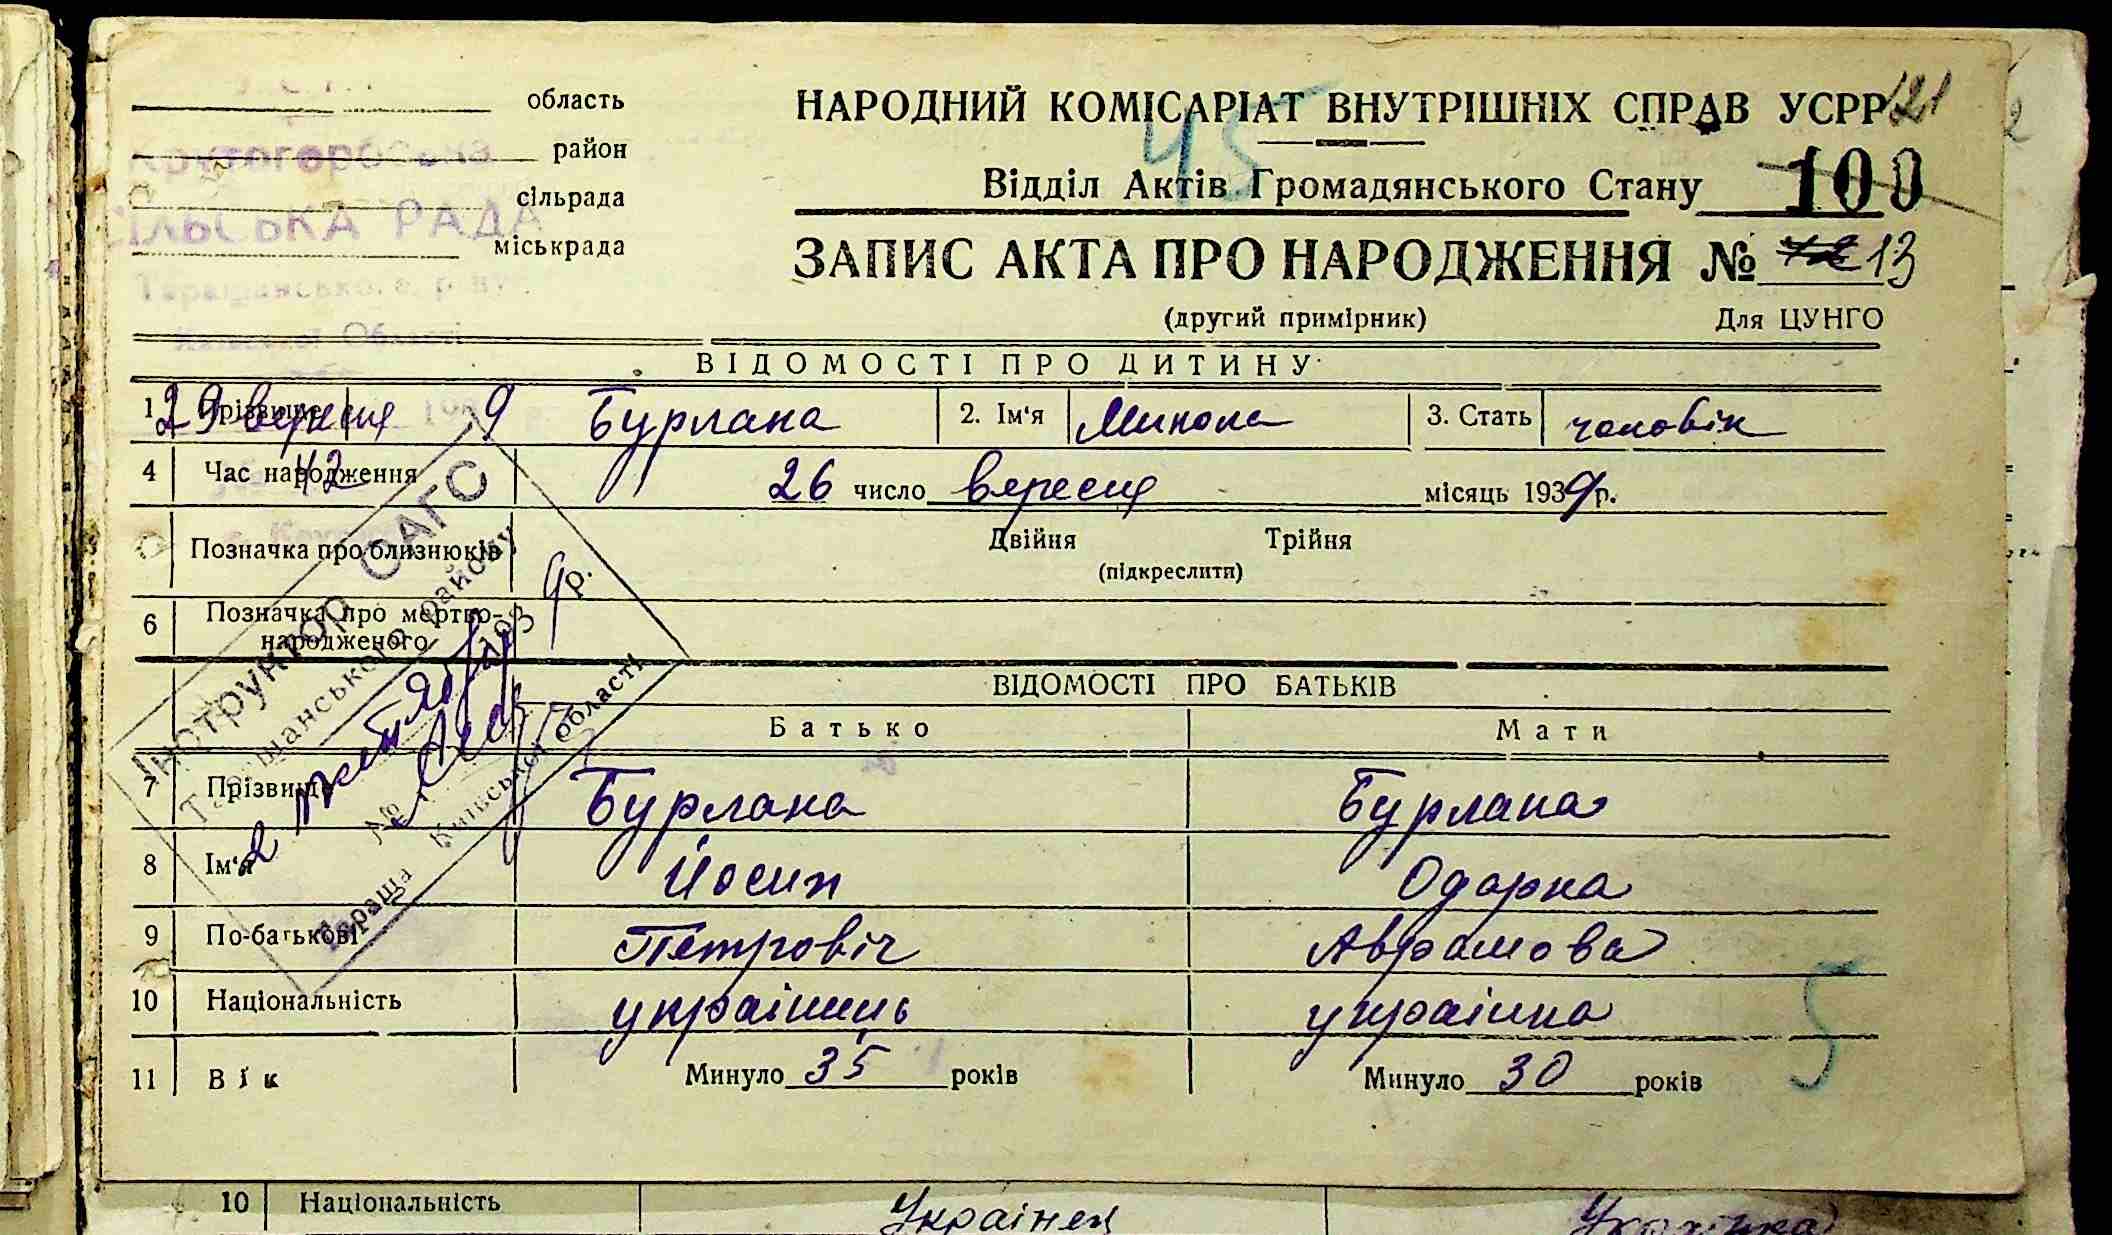 область
район
сільрада
міськрада
Крутогорбська
СІЛЬСЬКА РАДА
Таращанського р-ну
Київської Області
29 вересня 9
42
НАРОДНИЙ КОМІСАРІАТ ВНУТРІШНІХ СПРАВ УСРР 121
45
Відділ Актів Громадянського Стану 100
ЗАПИС АКТА ПРО НАРОДЖЕННЯ № 13
(другий примірник) Для ЦУНГО
ВІДОМОСТІ ПРО ДИТИНУ
1 Прізвище Бурлака 2. Ім'я Микола 3. Стать чоловік
4 Час народження 26 число вересня місяць 1939 р.
Позначка про близнюків Двійня Трійня
(підкреслити)
6 Позначка про мертво-
народженого
Інструктор ОАГС
Таращанського райвону
2 жовтября 193 9 р.
№
Тараща Київської області
ВІДОМОСТІ ПРО БАТЬКІВ
Батько Мати
7 Прізвище Бурлака Бурлака
8 Ім'я Йосип Одарка
9 По-батькові Петровіч Аврамова
10 Національність українць українка
11 Вік Минуло 35 років Минуло 30 років
5
10 Національність Українец Українка